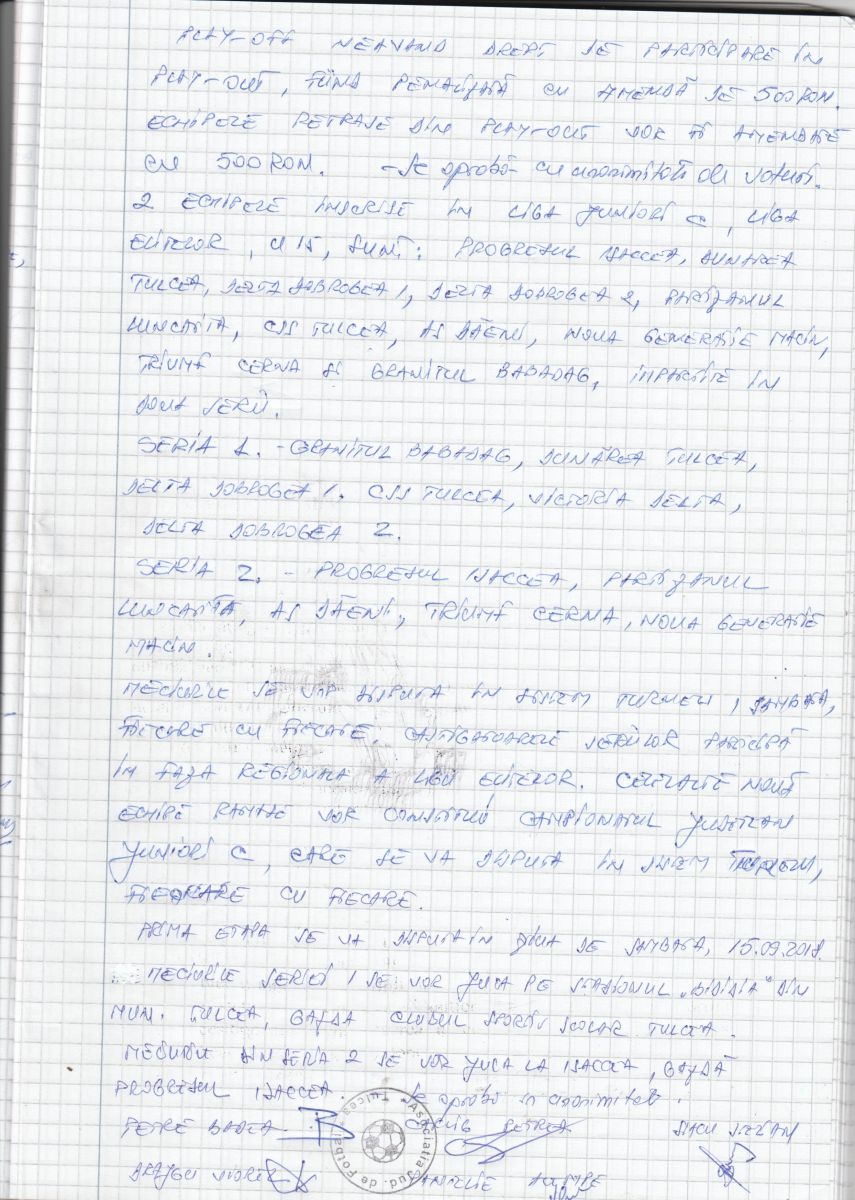 PLAY-OFF NEAVAND DREPT DE PARTICIPARE IN
PLAY-OUT, FIIND PENALIZATĂ CU AMENDĂ DE 500 RON.
ECHIPELE RETRASE DIN PLAY-OUT VOR FI AMENDATE
CU 500 RON. - Se aprobă cu unanimitate de voturi.
2 ECHIPELE INSCRISE IN LIGA JUNIORI C, LIGA
ELITELOR, U 15, SUNT: PROGRESUL ISACCEA, DUNAREA
TULCEA, DELTA DOBROGEA 1, DELTA DOBROGEA 2, PARTIZANUL
LUNCAVITA, CSS TULCEA, AS DĂENI, NOUA GENERATIE MACIN,
TRIUMF CERNA SI GRANITUL BABADAG, IMPARTITE IN
DOUA SERII.
SERIA 1. - GRANITUL BABADAG, DUNĂREA TULCEA,
DELTA DOBROGEA 1. CSS TULCEA, VICTORIA DELTA,
DELTA DOBROGEA 2.
SERIA 2. - PROGRESUL ISACCEA, PARTIZANUL
LUNCAVITA, AS DĂENI, TRIUMF CERNA, NOUA GENERATIE
MACIN.
MECIURILE SE VOR DISPUTA IN SISTEM TURNEU, SAMBATA,
FIECARE CU FIECARE. CASTIGATOARELE SERIILOR PARTICIPĂ
IN FAZA REGIONALA A LIGII ELITELOR. CELELALTE NOUĂ
ECHIPE RAMASE VOR CONSTITUI CAMPIONATUL JUDETEAN
JUNIORI C, CARE SE VA DISPUTA IN SISTEM TURNEU,
FIECARE CU FIECARE.
PRIMA ETAPA SE VA DISPUTA IN ZIUA DE SAMBATA, 15.09.2018.
MECIURILE SERIEI 1 SE VOR JUCA PE STADIONUL "BIDIDIA" DIN
MUN. TULCEA, GAZDA CLUBUL SPORTIV SCOLAR TULCEA.
MECIURILE DIN SERIA 2 SE VOR JUCA LA ISACCEA, GAZDĂ
PROGRESUL ISACCEA. Se aprobă in unanimitate.
PETRE BADEA PETREA STEFAN
VIOREL
Asociatia Jud. de Fotbal Tulcea